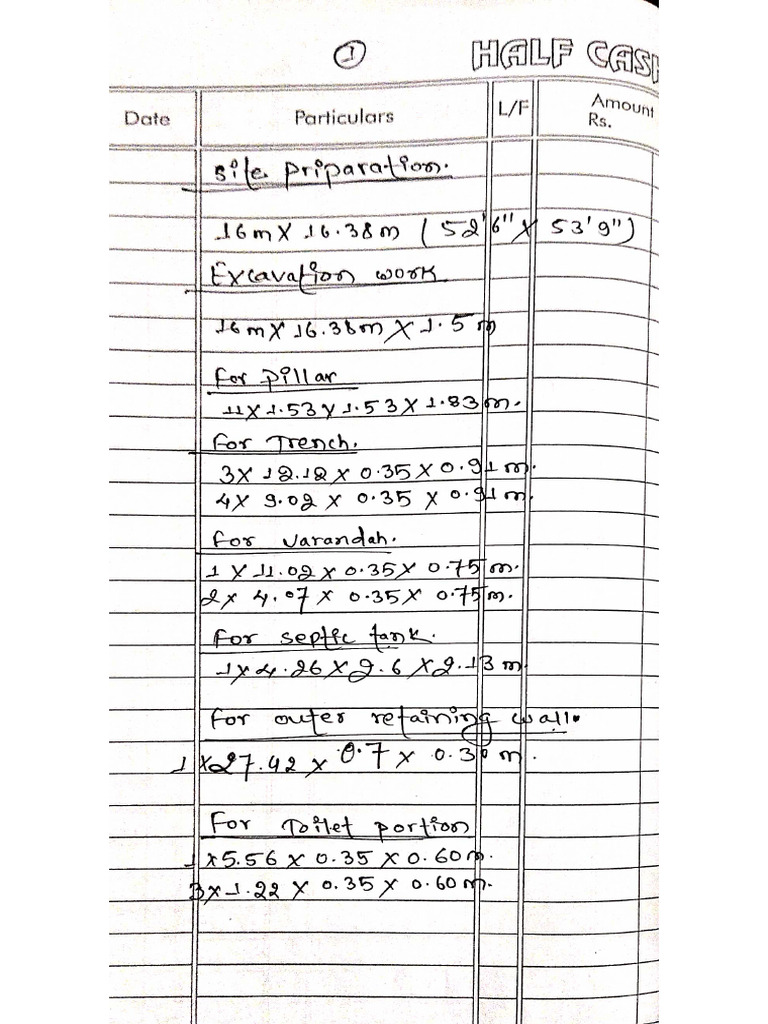 1
HALF CASH
Date Particulars L/F Amount Rs.
Site Priparation.
16m X 16.38m ( 52'6" X 53'9")
Excavation work
16m X 16.38m X 1.5m
For Pillar
11 X 1.53 X 1.53 X 1.83m.
For Trench.
3 X 12.12 X 0.35 X 0.91m.
4 X 9.02 X 0.35 X 0.91m.
For Varandah.
1 X 11.02 X 0.35 X 0.75m.
2 X 4.07 X 0.35 X 0.75m.
For Septic tank.
1 X 4.26 X 2.6 X 2.13m
For outer retaining wall.
1 X 27.42 X 0.7 X 0.30m.
For Toilet portion
1 X 5.56 X 0.35 X 0.60m.
3 X 1.22 X 0.35 X 0.60m.